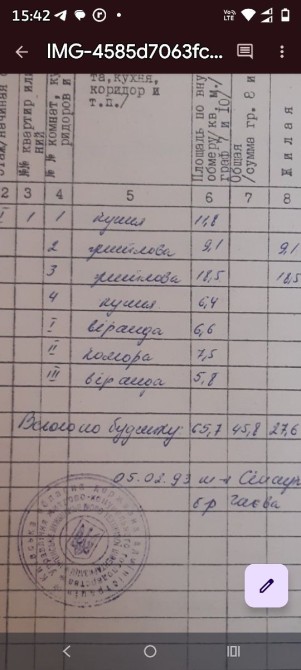 15:42
Vo)) LTE
IMG-4585d7063fc...
№№ квартир или
№№ комнат, ку
ридоров и
та, кухня,
коридор и
т.п./
Площадь по вну
обмеру/кв.м./
граф и 10/
Общая
/сумма гр. 8 и
Жилая
2 3 4 5 6 7 8
I 1 1 кухня 11,8
2 житлова 9,1 9,1
3 житлова 18,5 18,5
4 кухня 6,4
I віранда 6,6
II комора 7,5
III віранда 5,8
Всього по будинку 65,7 45,8 27,6
05.02.93
бр